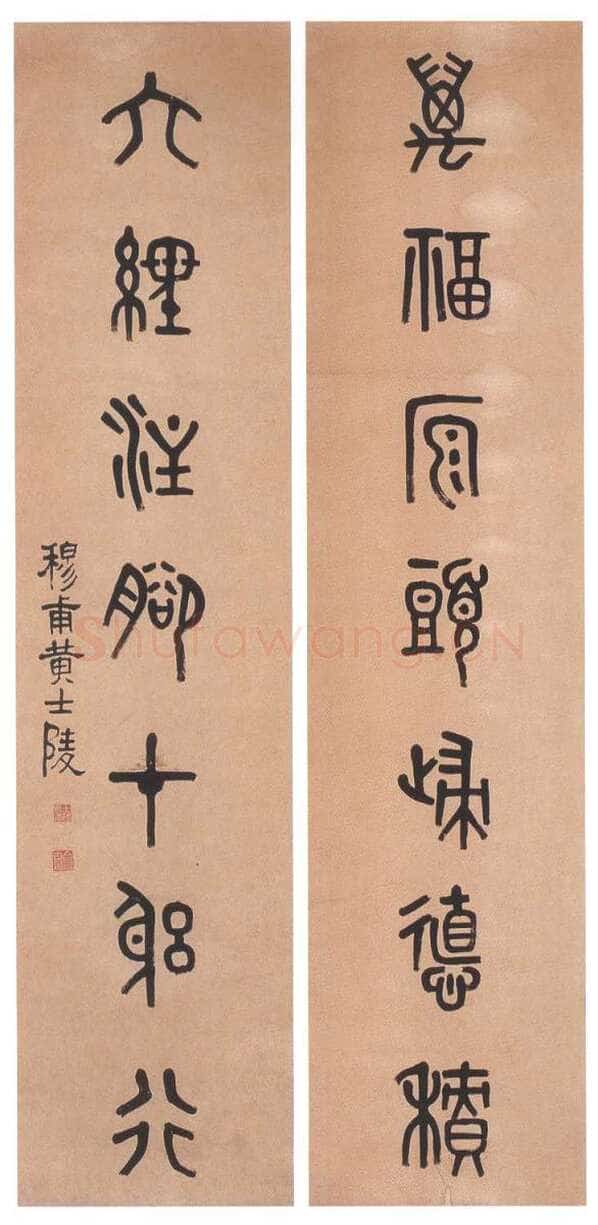 萬福原頭歸德積
六經注腳在躬行
穆甫黄士陵
Shufawang.CN